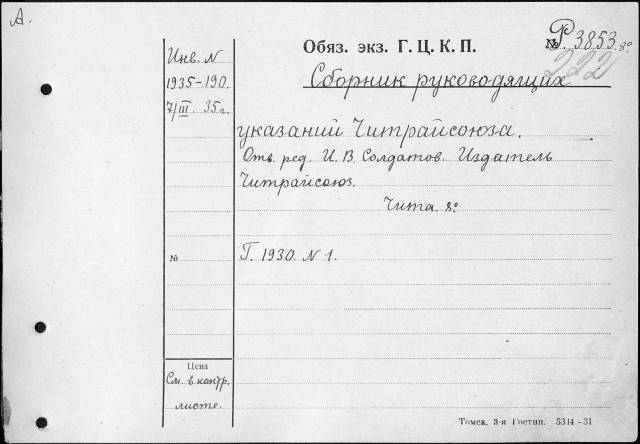 А.
Обяз. экз. Г. Ц. К. П.
№ Р. 3853. 8º
222
Инв. N
1935-190.
7/III. 35 г.
Сборник руководящих
указаний Читрайсоюза.
Отв. ред. И. В. Солдатов. Издатель
Читрайсоюз.
Чита. 8º
№
Г. 1930. N 1.
Цена
См. в контр.
листе.
Томск. 3-я Гостип. 5314-31